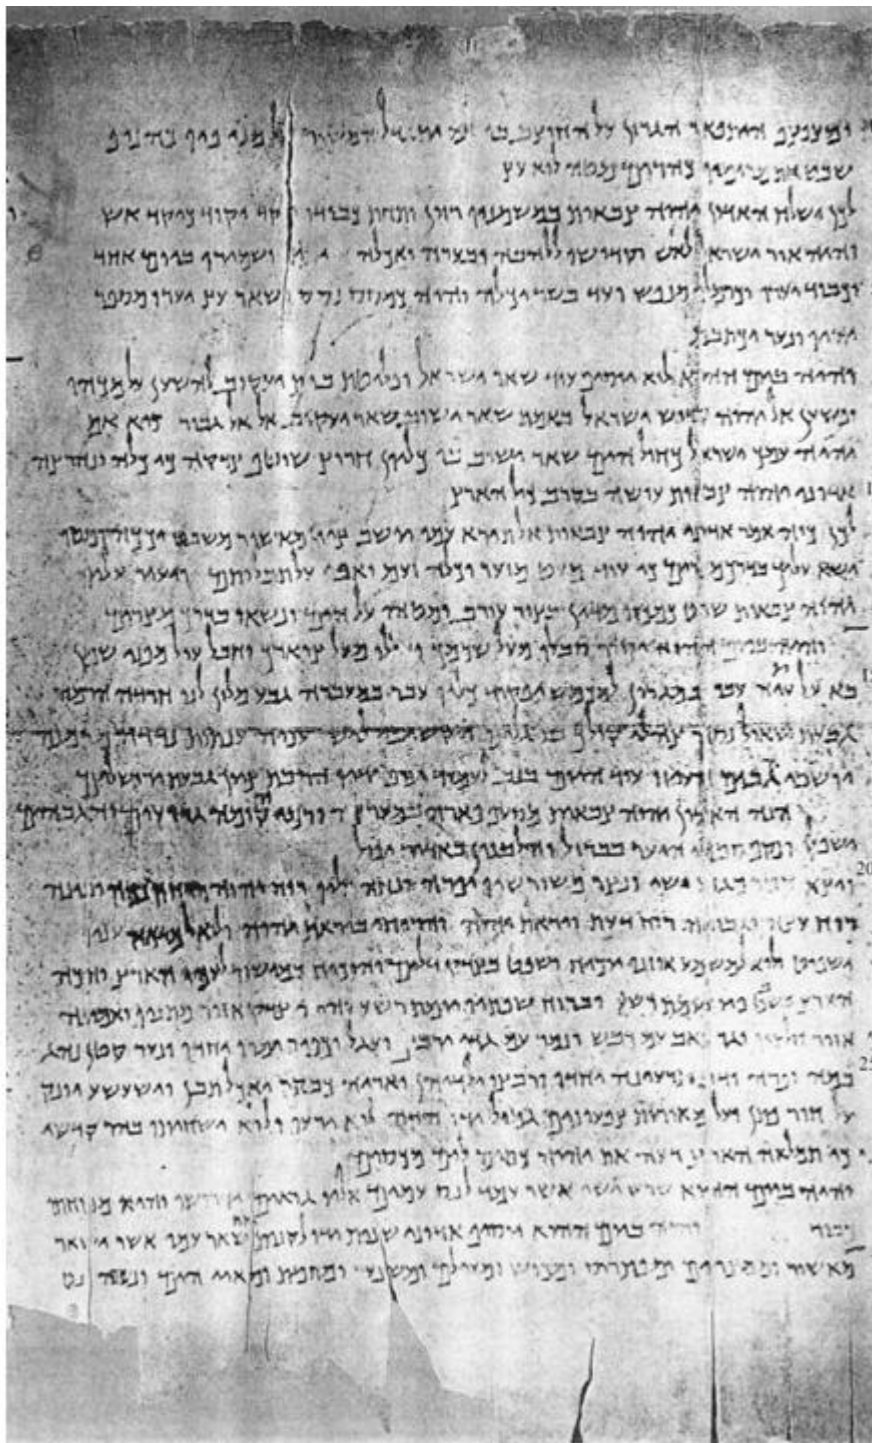 ומצפצף היתפאר הגרזן על החוצב בו המשור מניפו כהניף
שבט את מרימיו וכהרים מטה לוא עץ
לכן ישלח האדון יהוה צבאות במשמניו רזון ותחת כבודו יקוד כיקוד אש
והיה אור ישראל לאש וקדושו ללהבה ובערה ואכלה ושמירו ביום אחד
וכבוד יערו וכרמלו מנפש ועד בשר יכלה והיה ושאר עץ יערו מספר
יהיו ונער יכתבם
והיה ביום ההוא לוא יוסיף עוד שאר ישראל ופליטת בית יעקוב להשען על מכהו
ונשען אל יהוה קדוש ישראל באמת שאר ישוב שאר יעקוב אל אל גבור כיא אם
יהיה עמך ישראל כחול הים שאר ישוב בו כליון חרוץ שוטף צדקה כי כלה ונחרצה
אדוני יהוה צבאות עושה בקרב כול הארץ
לכן כוה אמר אדוני יהוה צבאות אל תירא עמי יושב ציון מאשור משבט יככה ומטהו
ישא עליך בדרך כי עוד מעט מזער וכלה זעם ואפי על תבליתם ויעיר עליו
יהוה צבאות שוט כמכת מדין בצור עורב ומטהו על הים ונשאו בדרך מצרים
והיה ביום ההוא יסור סבלו מעל שכמך ועולו מעל צוארך וחבל עול מפני שמן
בא על עית עבר במגרון למכמש יפקוד כליו עבר במעברה גבע מלון לנו חרדה הרמה
גבעת שאול נסה צהלי קולך בת גלים הקשיבי עניה ענתות נדדה מדמנה
יושבי הגבים העיזו עוד היום בנוב לעמוד ידו הר בת ציון גבעת ירושלים
הנה האדון יהוה צבאות מסעף פארה במערצה ורמי קומה גדועים והגבהים
ישפלו ונקף סבכי היער בברזל והלבנון באדיר יפול
ויצא חטר מגזע ישי ונצר משורשיו יפרה ונחה עליו רוח יהוה רוח חכמה ובינה
רוח עצה וגבורה רוח דעת ויראת יהוה והריחו ביראת יהוה ולוא למראה עיניו
ישפוט ולוא למשמע אוזניו יוכיח ושפט בצדק דלים והוכיח במישור לענוי הארץ והכה
הארץ בשבט וברוח שפתיו יומת רשע והיה צדק אזור מתניו ואמונה
אזור חלציו וגר זאב עם כבש ונמר עם גדי ירבץ ועגל וכפיר ימרו יחדו ונער קטן נהג
במה ופרה ודוב תרעינה יחדו ורבצו ילדיהן ואריה כבקר יאכל תבן ושעשע יונק
על חור פתן ועל מאורות צפעונים גמול ידו הדה לוא ירעו ולוא ישחיתו בהר קדשי
כי תמלאה הארץ דעה את יהוה כמים לים מכסים
והיה ביום ההוא שורש ישי אשר עמד לנס עמים אליו גואים ידרשו והיא מנוחתו
כבוד והיה ביום ההוא יוסיף אדוני שנית ידו לקנות את שאר עמו אשר ישאר
מאשור וממצרים ומפתרוס ומכוש ומעילם ומשנער ומחמת ומאיי הים ונשא נס